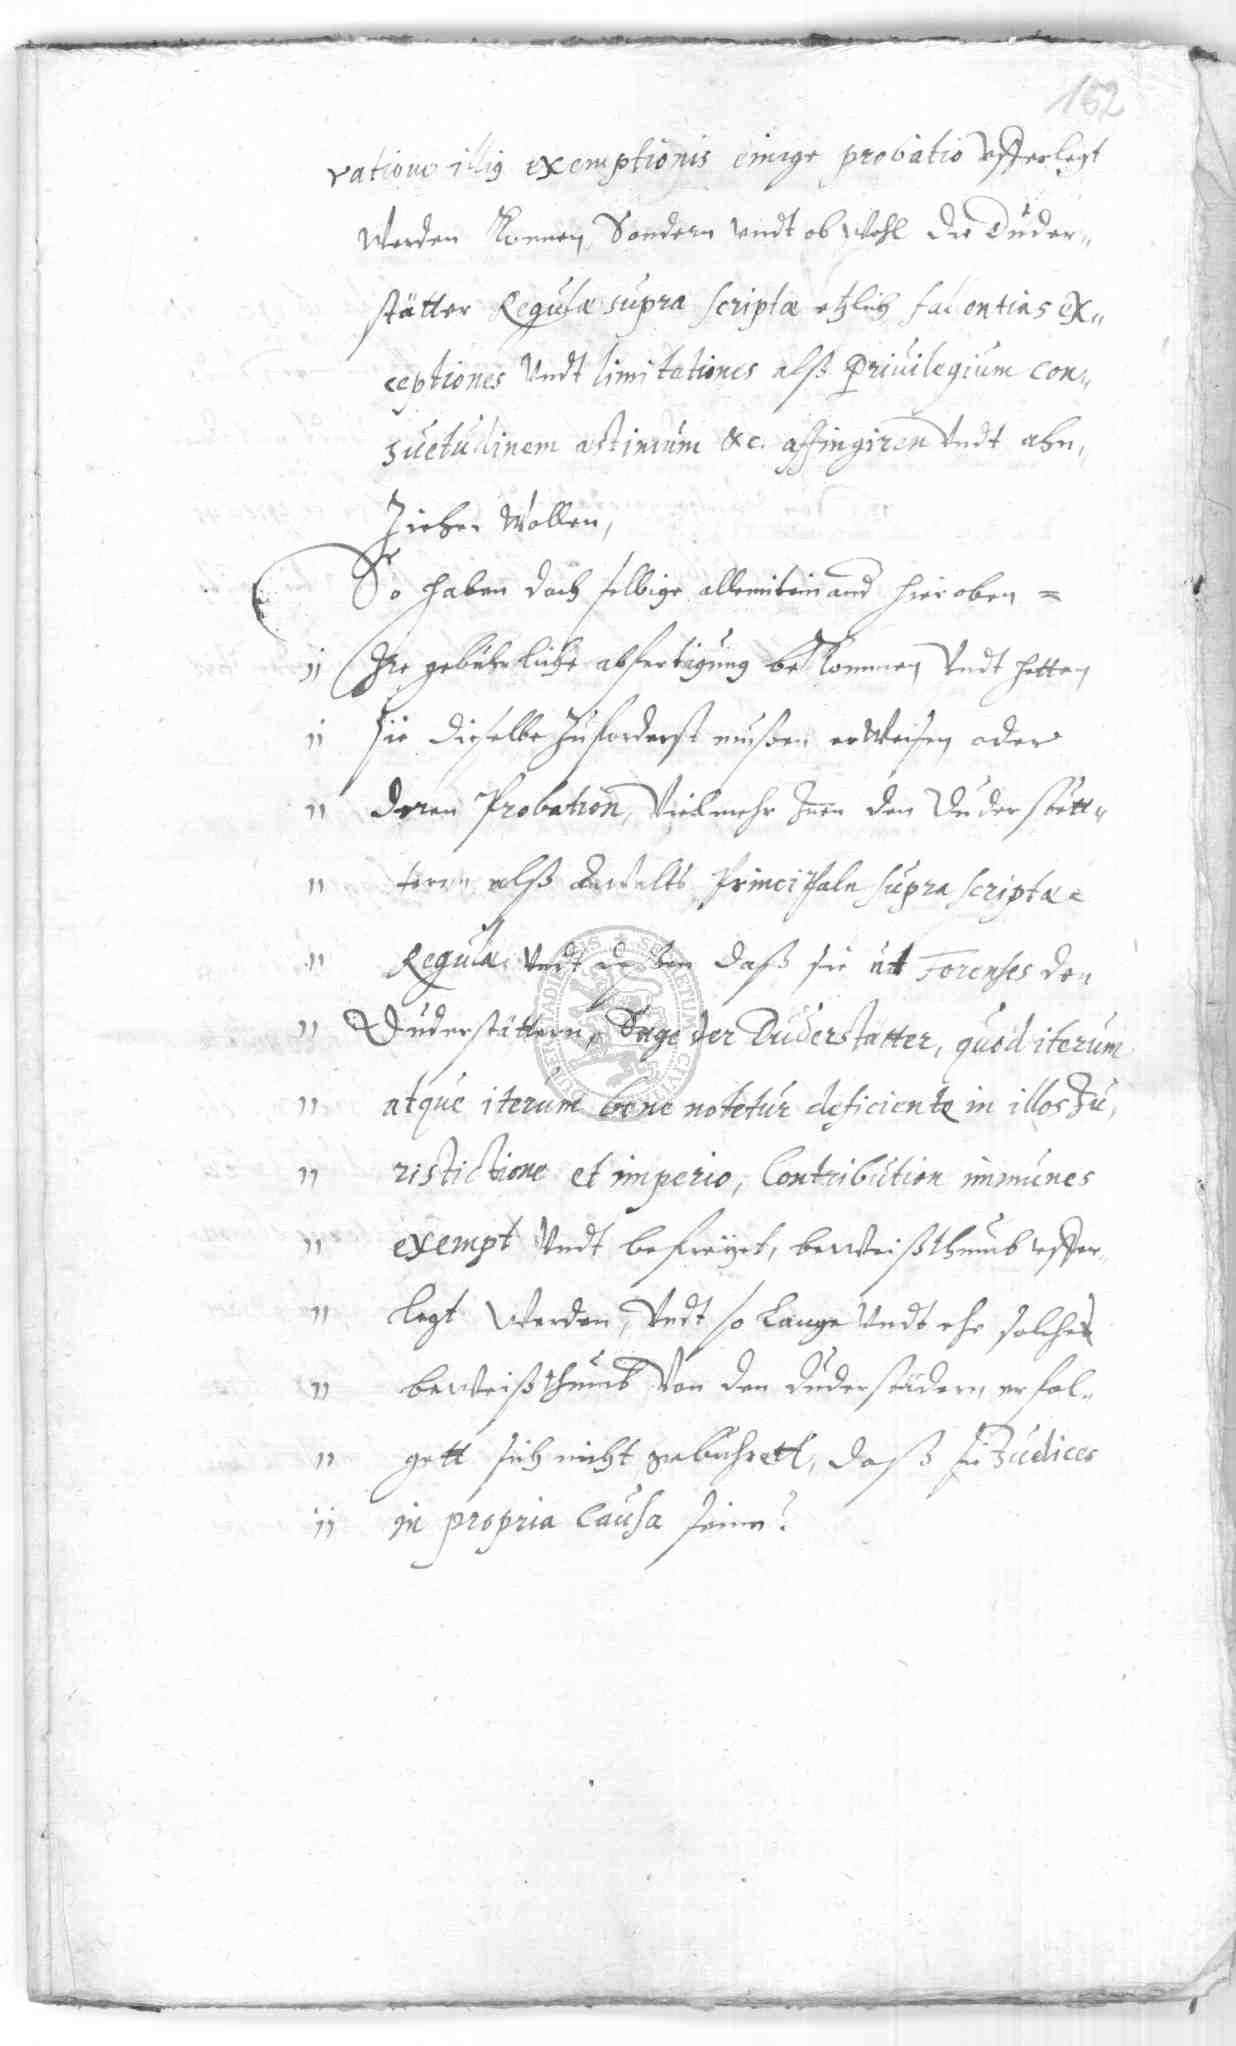 162
ratione illius exemptionis einige probatio vfferlegt
werden konnen, Sondern vndt ob wohl die Duder„
stätter Regulæ supra scriptæ etzlich fallentias ex„
ceptiones vndt limitationes alß Privilegium con„
suetudinem astimum &c. affingiren vndt ahn„
ziehen wollen,
So haben doch selbige allemiteinand hier oben =
„ Ihre gebührliche abfertigung bekommen vndt hetten
„ sie dieselbe zuforderst mußen erweisen oder
„ deren Probation, vielmehr Inen den Duderstett„
„ tern alß Anwalts Principaln supra scriptæ =
„ Regulæ vndt daß sie ut Forenses den
„ Duderstättern, Sage der Duderstatter, quod iterum
„ atque iterum bene notetur deficiente in illos Ju„
„ risdictione et imperio, Contribution immunes
„ exempt vndt befreÿet, beweißthumb vffer„
„ legt werden, vndt so lange vndt ehe solches
„ beweißthumb von den Duderstädern erfol„
„ gett sich nicht gebuhrett, daß sie Judices
„ in propria causa seinn?